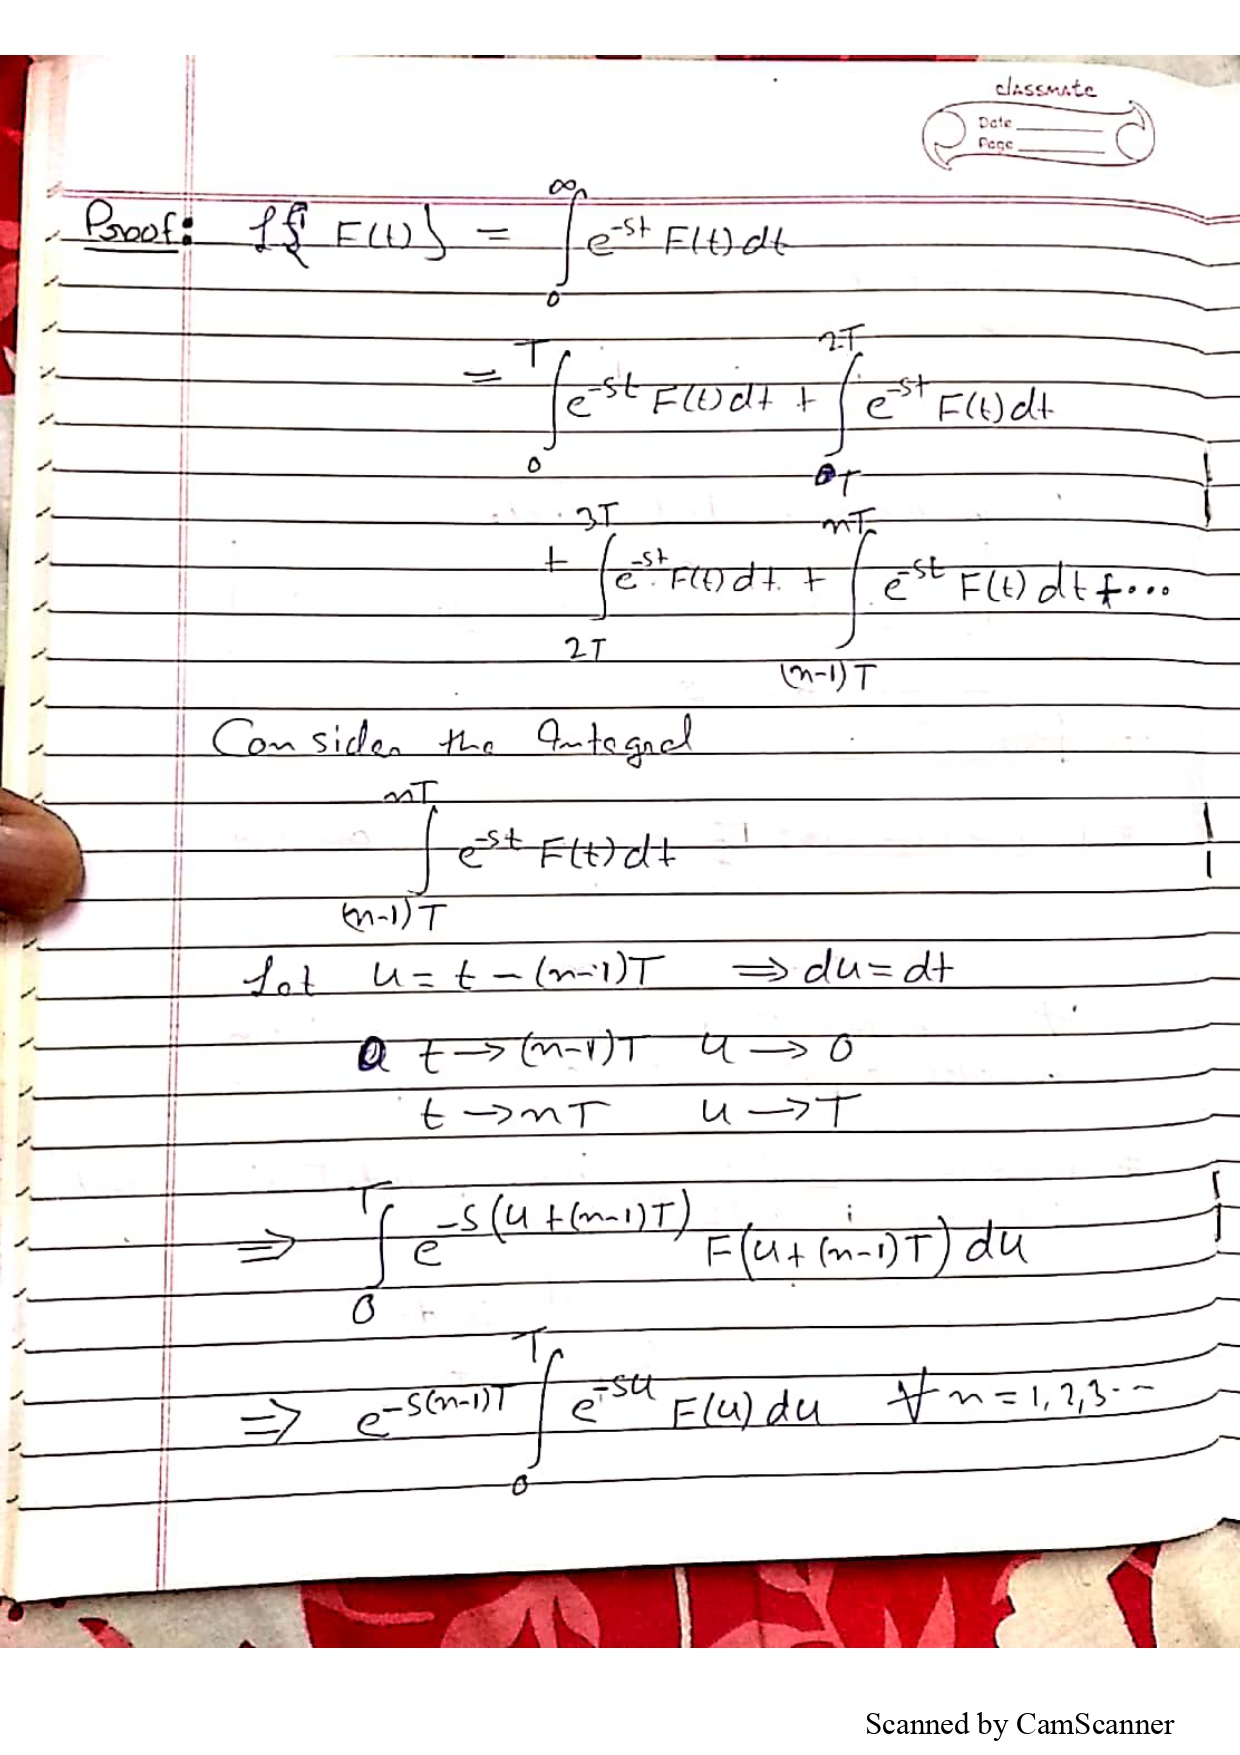 classmate
Date
Page
Proof: L{F(t)} = ∫₀^∞ e^{-st} F(t) dt
= ∫₀^T e^{-st} F(t) dt + ∫_T^{2T} e^{-st} F(t) dt
+ ∫_{2T}^{3T} e^{-st} F(t) dt + ∫_{(n-1)T}^{nT} e^{-st} F(t) dt + ...
Consider the Integral
∫_{(n-1)T}^{nT} e^{-st} F(t) dt
Let u = t - (n-1)T ⇒ du = dt
t → (n-1)T u → 0
t → nT u → T
⇒ ∫₀^T e^{-s(u+(n-1)T)} F(u+(n-1)T) du
⇒ e^{-s(n-1)T} ∫₀^T e^{-su} F(u) du ∀ n = 1,2,3--
Scanned by CamScanner